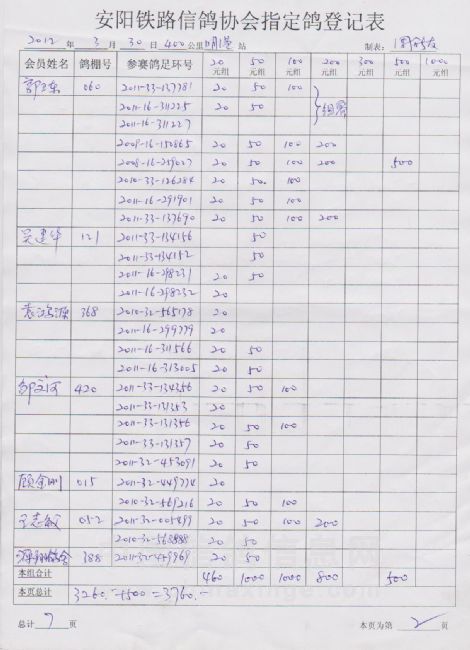 安阳铁路信鸽协会指定鸽登记表
2012 年 3 月 30 日 400 公里 明港 站 制表：
会员姓名 鸽棚号 参赛鸽足环号 20元组 50元组 100元组 200元组 300元组 500元组 1000元组
060 2011-33-137781 20 50 100
2011-16-311225 20 50
2011-16-311227
2009-16-150865 20 50 100 200
2008-16-259027 20 50 100 200 500
2010-33-126284 20 50 100
2011-16-291901 20 50 100
2011-33-137690 20 50 100 200
吴建华 121 2011-33-134156 50
2011-33-134152 50
2011-16-298231 20 50
2011-16-298232 20
袁鸿源 368 2010-32-565178 20
2011-16-299779 20
2011-16-311566 20 50
2011-16-313005 20 50
邹文河 420 2011-33-134356 20 50 100
2011-33-131353 20
2011-33-131356 20 50 100
2011-33-131357 20 50
2011-32-453091 20 50
顾金刚 015 2011-32-449774 20
2010-32-569216 20 50 100
王志敏 052 2011-32-005499 20 50 100 200
2010-32-568888 20 50
388 2011-32-459969 20 50
本组合计 460 1000 1000 800 500
本页总计 3260.- +500 = 3760.-
总计 7 页 本页为第 2 页